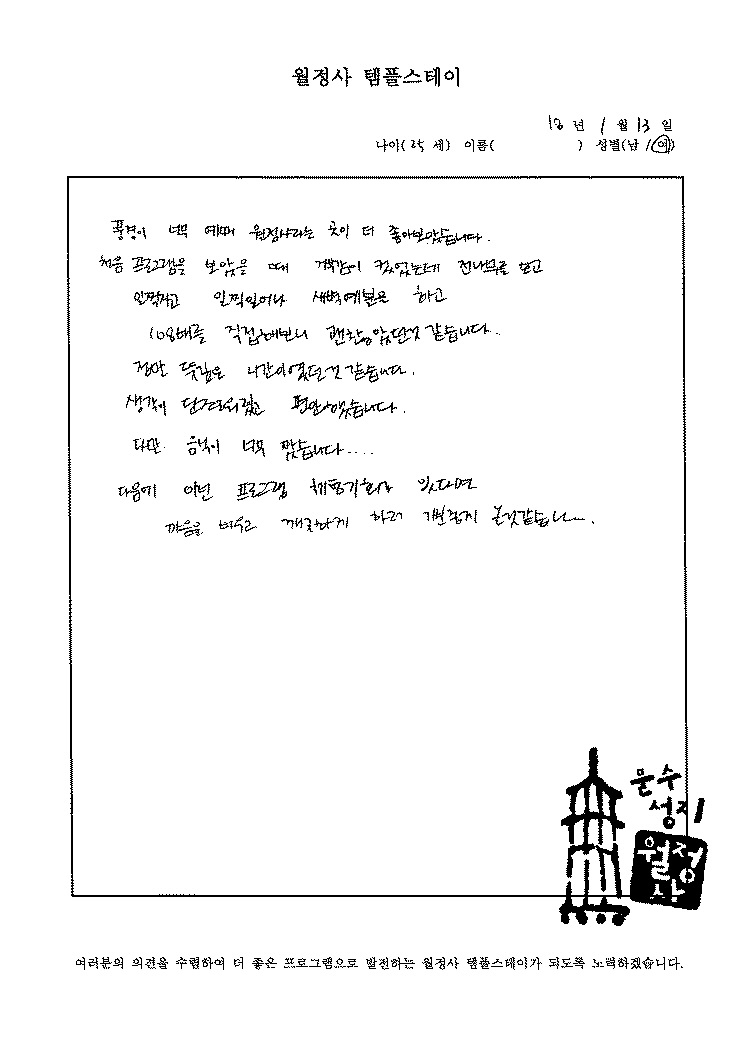 월정사 템플스테이
18 년 1 월 13 일
나이( 25 세) 이름( ) 성별(남/여)
풍경이 너무 예뻐 월정사라는 곳이 더 좋아보았습니다.
처음 프로그램을 보았을 때 거부감이 컸었는데 전나무를 보고
일찍자고 일찍일어나 새벽예불은 하고
108배를 직접해보니 괜찮았던것 같습니다.
정말 뜻깊은 시간이였던것 같습니다.
생각이 단조로워졌고 편안해졌습니다.
다만 음식이 너무 짰습니다....
다음에 이런 프로그램 체험기회가 있다면
마음을 비우고 하러
문수
성지
월정
사
여러분의 의견을 수렴하여 더 좋은 프로그램으로 발전하는 월정사 템플스테이가 되도록 노력하겠습니다.